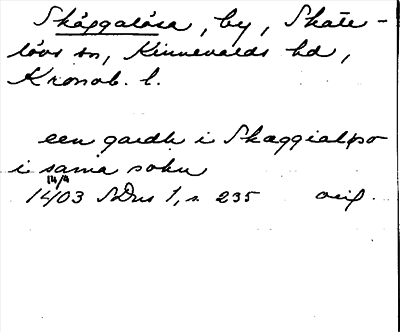 Skäggalösa, by, Skate-
lövs sn, Kinnevalds hd,
Kronob. l.
een gardh i Skæggialøso
i sama sokn
14/4
1403 SDns 1, s. 235 orig.